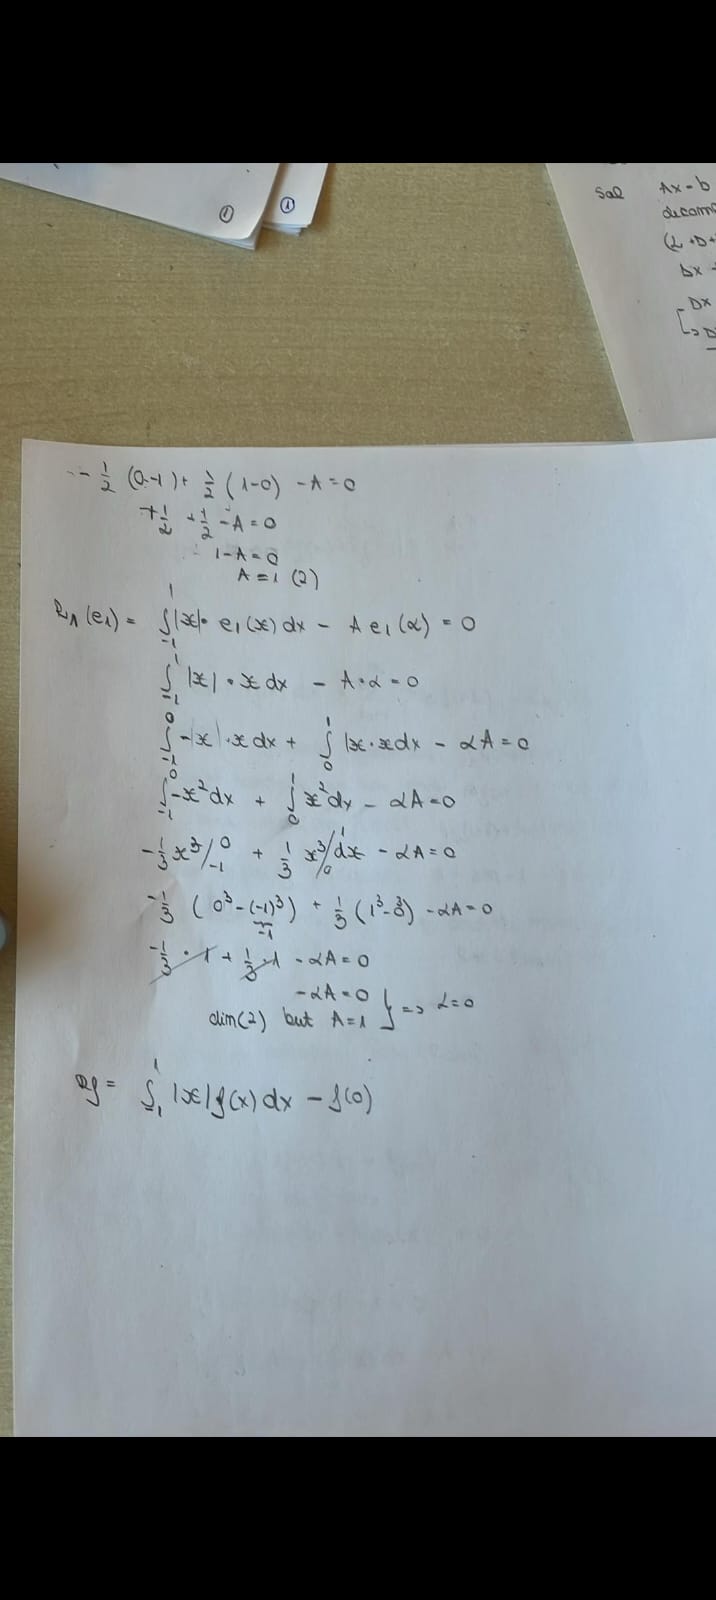 ①
①
Sol Ax = b
(L + D +
Dx
Dx
- 1/2 (0-1) + 1/2 (1-0) - A = 0
+ 1/2 + 1/2 - A = 0
1 - A = 0
A = 1 (2)
R₁(e₁) = ∫₋₁¹ |x| · e₁(x) dx - A e₁(α) = 0
∫₋₁¹ |x| · x dx - A · α = 0
∫₋₁⁰ -|x| · x dx + ∫₀¹ |x · x dx - αA = 0
∫₋₁⁰ -x² dx + ∫₀¹ x² dx - αA = 0
-1/3 x³ /₋₁⁰ + 1/3 x³ /₀¹ dx - αA = 0
-1/3 (0³ - (-1)³) + 1/3 (1³ - 0³) - αA = 0
-1
-1/3 · 1 + 1/3 · 1 - αA = 0
-αA = 0
din(2) but A = 1 } => α = 0
Rf = ∫₋₁¹ |x| f(x) dx - f(0)